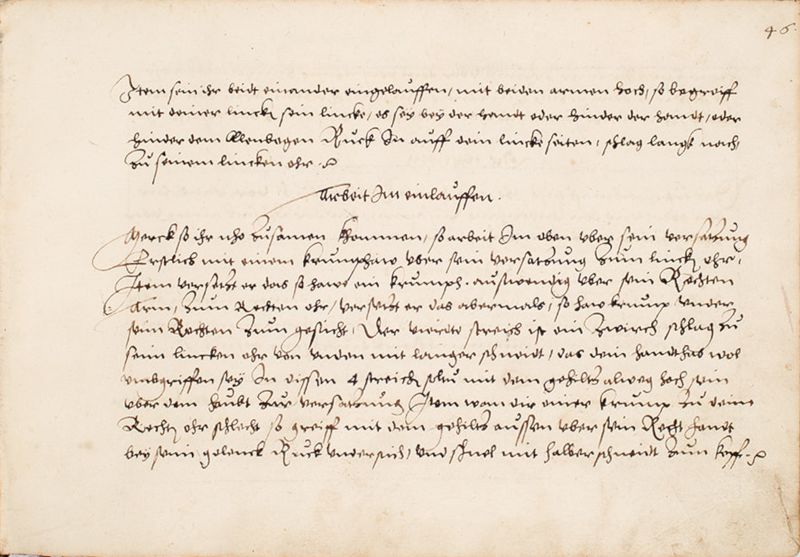 46.
Item sein ihr beidt einander eingelauffen, mit beiden armen hoch, so begreiff
mit deiner lincken sein lincke, es sey bey der handt oder hinder der handt, oder
hinder dem Elenbogen Ruck In auff dein lincke seiten, schlag langk nach
zu seinem lincken ohr.
Arbeit Im einlauffen.
Merck so ihr nho zusamen khommen, so arbeit Im oben vber sein versatzung
Erstlich mit einem krumphaw vber sein versatzung zum lincken ohr,
Item versetzt er das so haw ein krumph auswendig vber sein Rechten
Arm, zum Rechten ohr, versetzt er das abermals, so haw krump vnder
sein Rechten zum gesicht, Der vierdte streich ist ein zwirch schlag zu
sein lincken ohr von vnden mit langer schneidt, das dein handthab wol
vmbgriffen sey In dissen 4 streichen soltu mit dem gehiltz alweg hoch sein
vber dem haubt zur versatzung Item wan dir einer krump zu deim
Rechten ohr schlecht so greiff mit dein gehiltz aussen vber sein Recht handt
bey seim gelenck Ruck vndersich, vnd mit halber schneidt zum kopff.